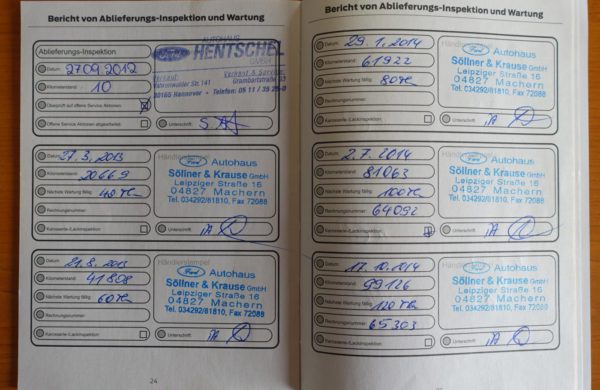 Bericht von Ablieferungs-Inspektion und Wartung
Ablieferungs-Inspektion
Datum: 27.09.2012
Kilometerstand: 10
Überprüft auf offene Service Aktionen:
Offene Service Aktionen abgearbeitet:
Unterschrift:
AUTOHAUS
Ford HENTSCHEL
GMBH
Verkauf:
Vahrenwalder Str. 141
Verkauf & Service
30165 Hannover • Telefon: 05 11 /
Datum: 27.3.2013
Kilometerstand: 20669
Nächste Wartung fällig:
Rechnungsnummer:
Karosserie-/Lackinspektion:
Händlerstempel
Ford Autohaus
Söllner & Krause GmbH
Leipziger Straße 16
04827 Machern
Tel. 034292/81810, Fax 72088
Unterschrift: iA
Datum: 21.8.2013
Kilometerstand: 41808
Nächste Wartung fällig:
Rechnungsnummer:
Karosserie-/Lackinspektion:
Händlerstempel
Ford Autohaus
Söllner & Krause GmbH
Leipziger Straße 16
04827 Machern
Tel. 034292/81810, Fax 72088
Unterschrift: iA
24
Bericht von Ablieferungs-Inspektion und Wartung
Datum: 29.1.2014
Kilometerstand: 61922
Nächste Wartung fällig:
Rechnungsnummer:
Karosserie-/Lackinspektion:
Ford Autohaus
Söllner & Krause GmbH
Leipziger Straße 16
04827 Machern
Tel. 034292/81810, Fax 72088
iA
Datum: 2.7.2014
Kilometerstand: 81063
Nächste Wartung fällig:
Rechnungsnummer: 64092
Karosserie-/Lackinspektion:
Händlerstempel
Ford Autohaus
Söllner & Krause GmbH
Leipziger Straße 16
04827 Machern
Tel. 034292/81810, Fax 72088
Unterschrift: iA
Datum: 17.10.2014
Kilometerstand: 99126
Nächste Wartung fällig:
Rechnungsnummer: 65303
Karosserie-/Lackinspektion:
Händlerstempel
Ford Autohaus
Söllner & Krause GmbH
Leipziger Straße 16
04827 Machern
Tel. 034292/81810, Fax 72088
Unterschrift: iA